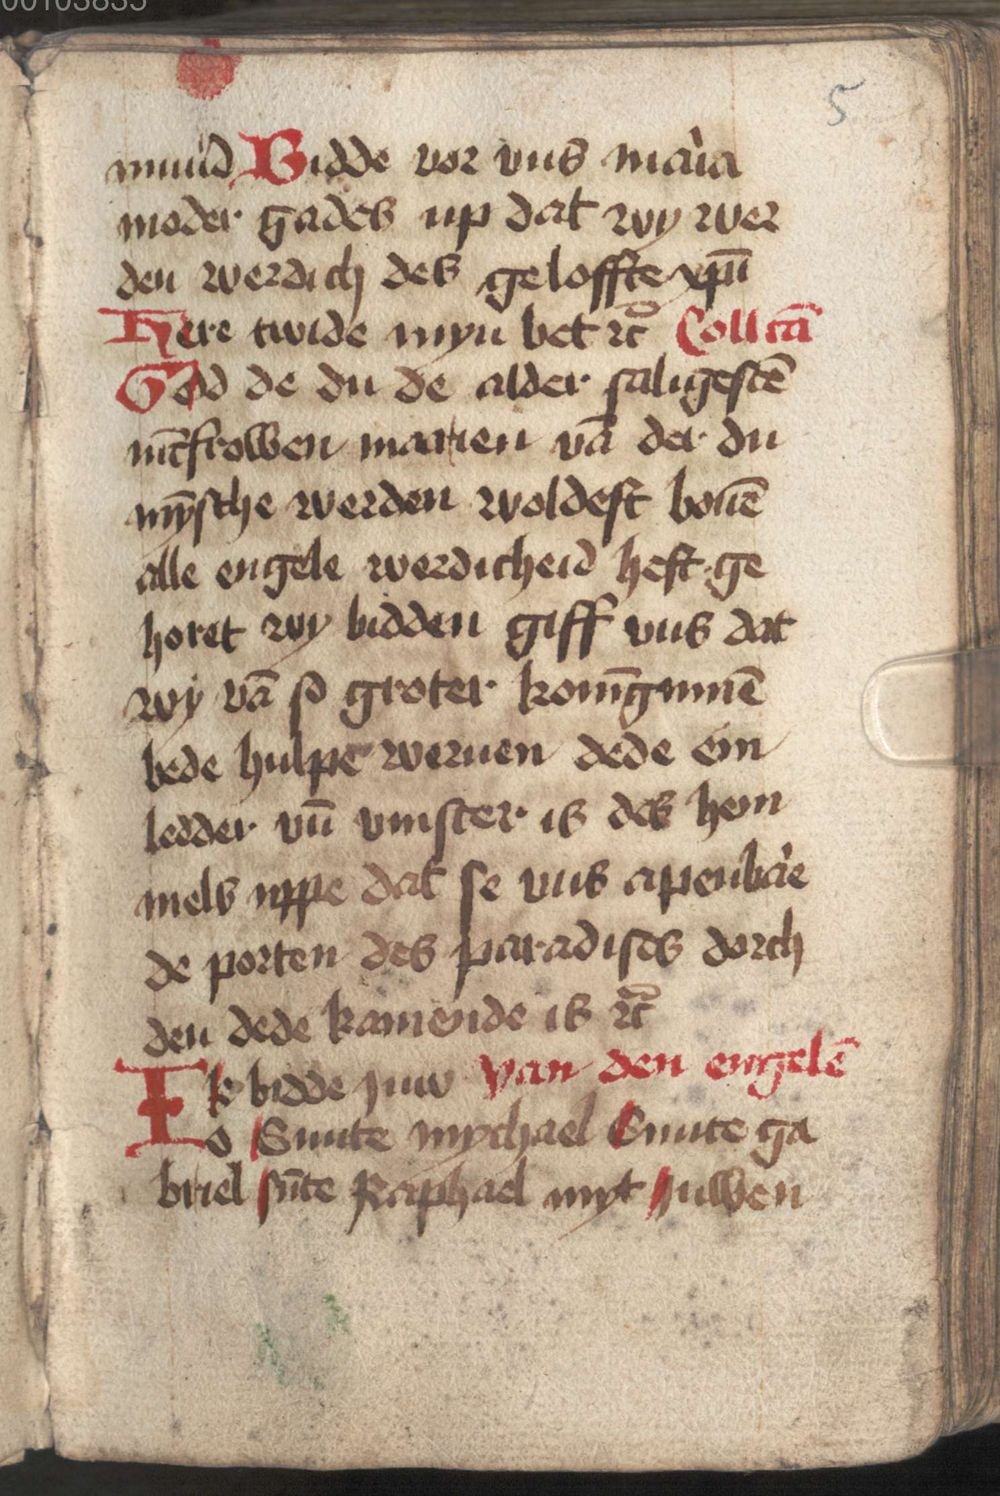 00103835
5
mund Bidde vor vns maria
moder gades up dat wy wer
den werdich des geloffte xpū
Here twide myn bet rc̄ Collcā
God de du de alder saligestē
iūcfrowen marien vā der du
mȳsche werden woldest bouē
alle engele werdicheid hefft ge
horet wy bidden giff vns dat
wy vā so groter konīgīnnē
bede hulpe weruen dede ein
ledder vn̄ vinster is des hem
mels uppe dat se vns apenbare
de porten des paradises dorch
den dede kamende is rc̄
Ik bidde juw van den engelē
o Sunte mychael Sunte ga
briel sūte Raphael myt juwen